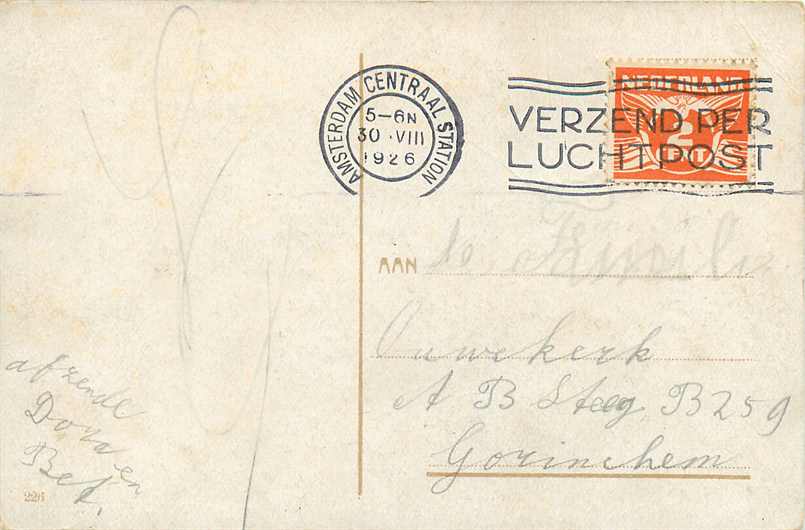 AMSTERDAM CENTRAAL STATION
5-6N
30 · VIII
1926
VERZEND PER
LUCHTPOST
NEDERLAND
2
AAN
Familie
Ouwekerk
A B Steeg B259
Gorinchem
afzende
Dora en
Bet.
226